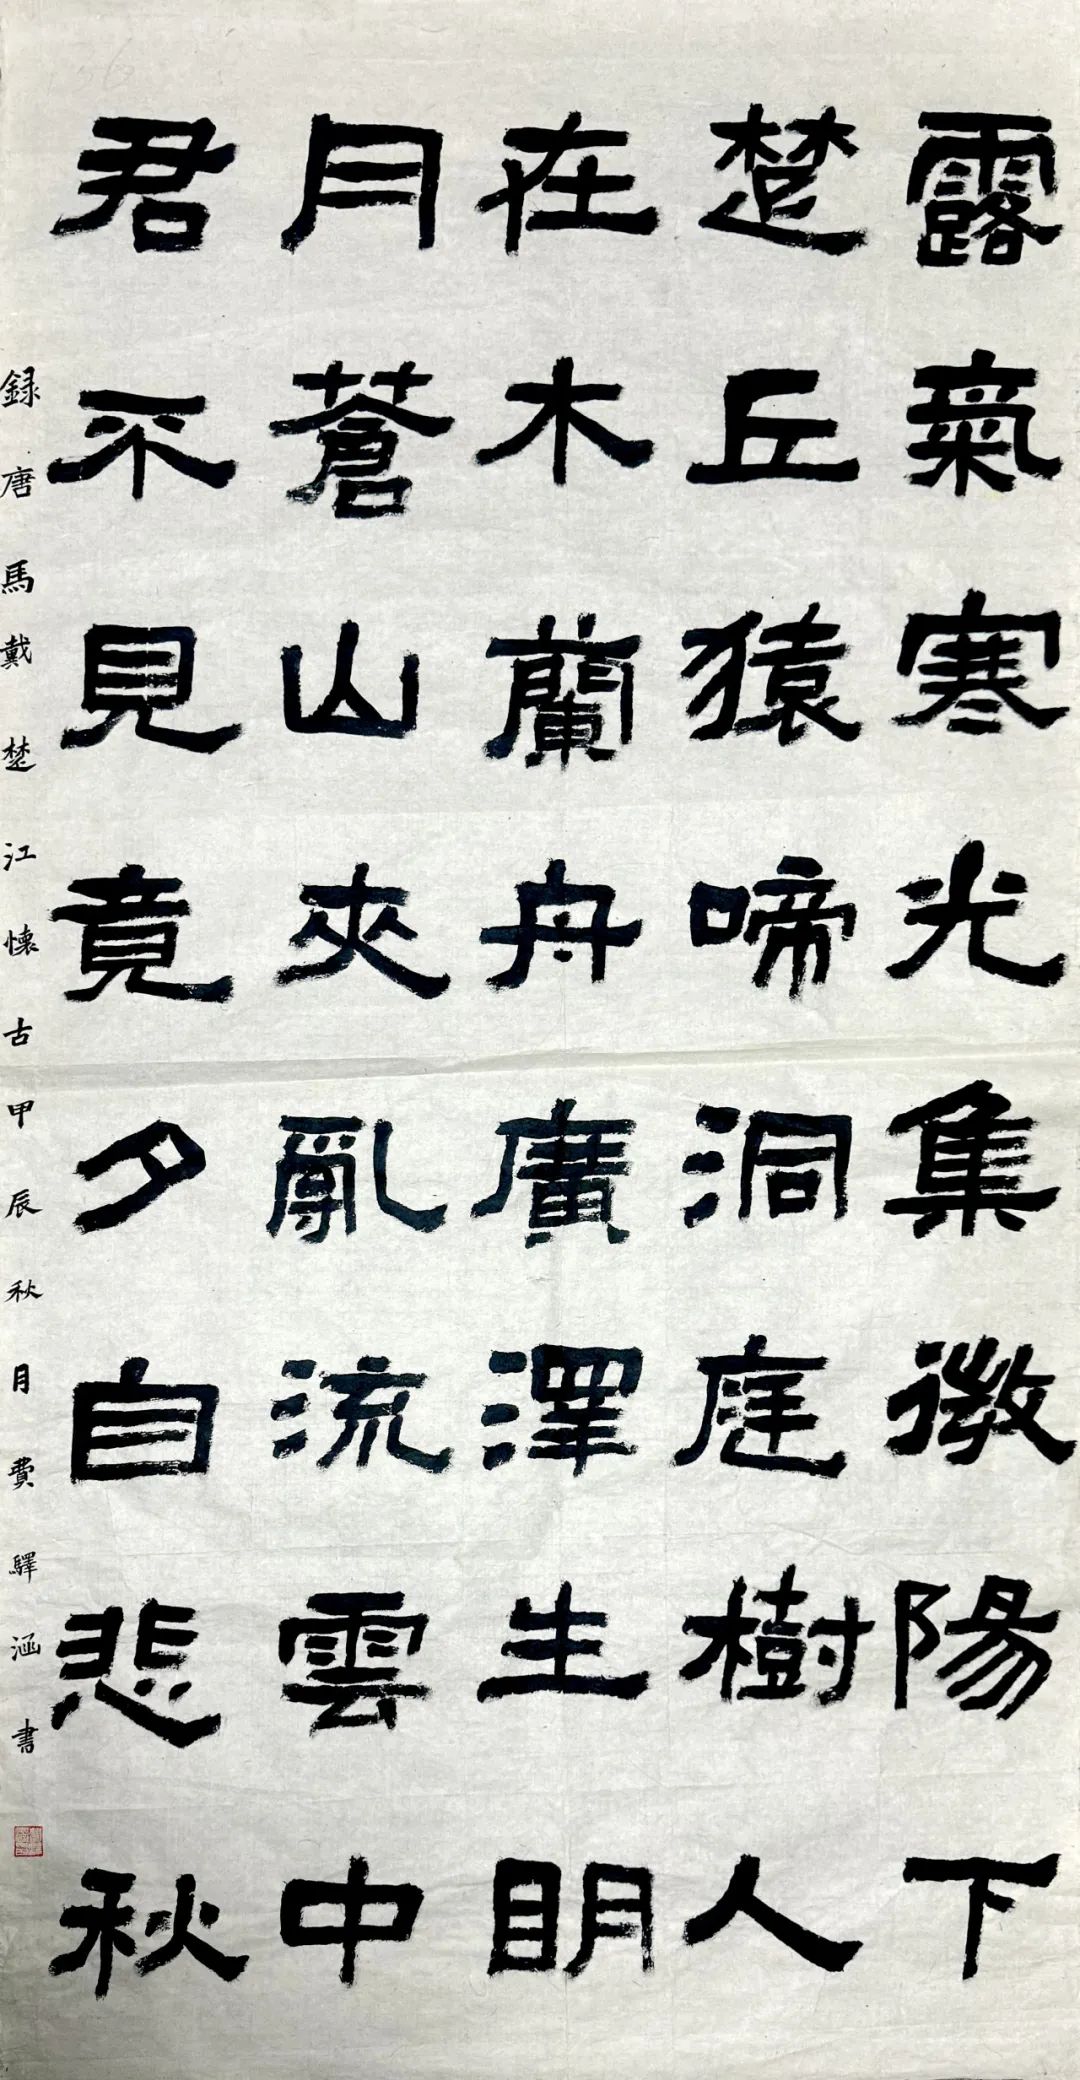 露氣寒光集微陽下
楚丘猿啼洞庭樹人
在木蘭舟廣澤生明
月蒼山夾亂流雲中
君不見竟夕自悲秋
録唐馬戴楚江懷古甲辰秋月費驛涵書